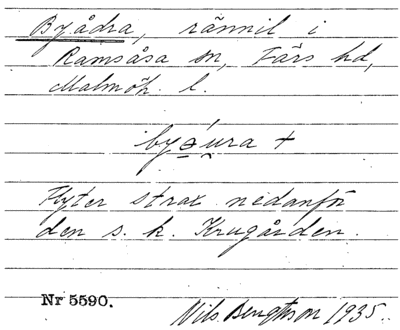 Byådra, rännil i
Ramsåsa sn, Färs hd,
Malmöh. l.
Flyter strax nedanför
den s. k. Krugården.
Nr 5590.
Nils Bengtsson 1935.